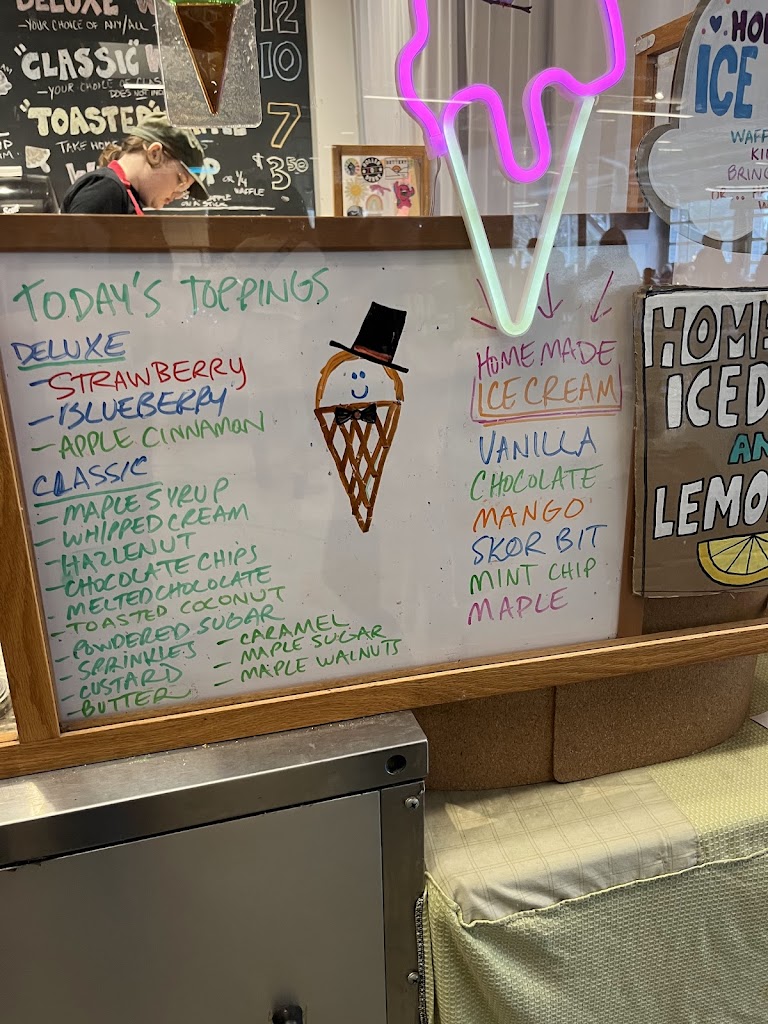 DELUXE
—YOUR CHOICE OF ANY/ALL
12
"CLASSIC"
10
—YOUR CHOICE OF
DOES NOT
"TOASTER"
7
TAKE HOME
$3.50
OR 1/4
WAFFLE
APPLE
ON A STICK
ICE
WAFF
BRING
TODAY'S TOPPINGS
DELUXE
- STRAWBERRY
- BLUEBERRY
- APPLE CINNAMON
CLASSIC
- MAPLE SYRUP
- WHIPPED CREAM
- HAZLENUT
- CHOCOLATE CHIPS
- MELTED CHOCOLATE
- TOASTED COCONUT
- POWDERED SUGAR
- SPRINKLES
- CUSTARD
- BUTTER
- CARAMEL
- MAPLE SUGAR
- MAPLE WALNUTS
HOMEMADE
ICE CREAM
VANILLA
CHOCOLATE
MANGO
SKOR BIT
MINT CHIP
MAPLE
HOME
ICED
AN
LEMO